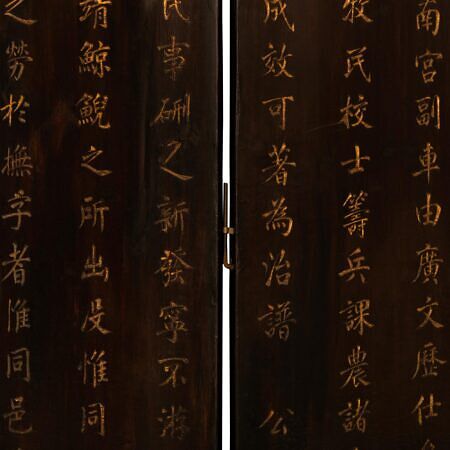 南宮副車由廣文歷仕
牧民校士籌兵課農諸
成效可著為治譜　公
民事硎之新發寧不游
靖鯨鯢之所出沒惟同
之勞於撫字者惟同邑